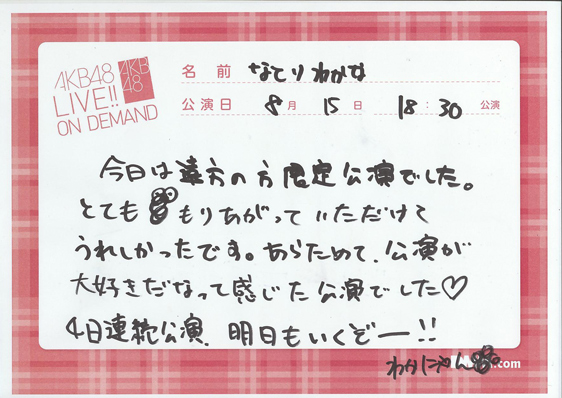 AKB48
LIVE!!
ON DEMAND
AKB
48
名 前 なとりわかな
公演日 8月 15日 18:30 公演
今日は遠方の方限定公演でした。
とても もりあがっていただけて
うれしかったです。あらためて、公演が
大好きだなって感じた公演でした♡
4日連続公演、明日もいくぞー!!
わかにゃん
.com